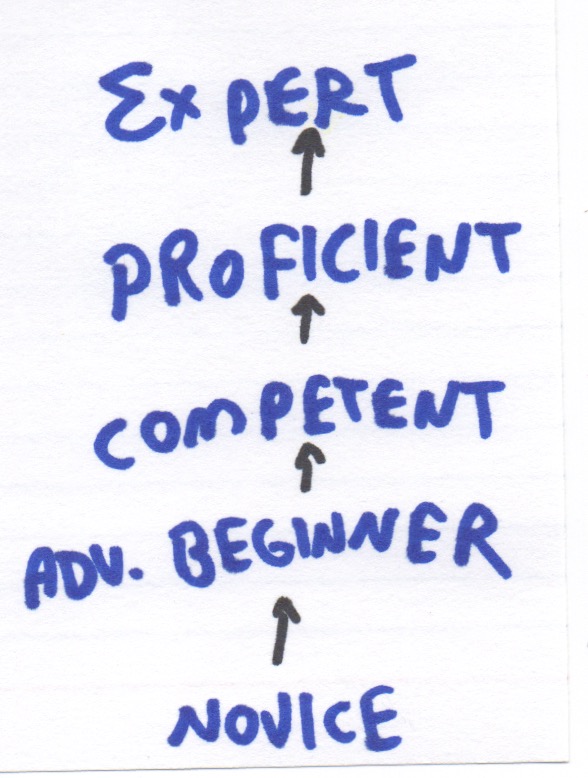 EXPERT
PROFICIENT
COMPETENT
ADV. BEGINNER
NOVICE